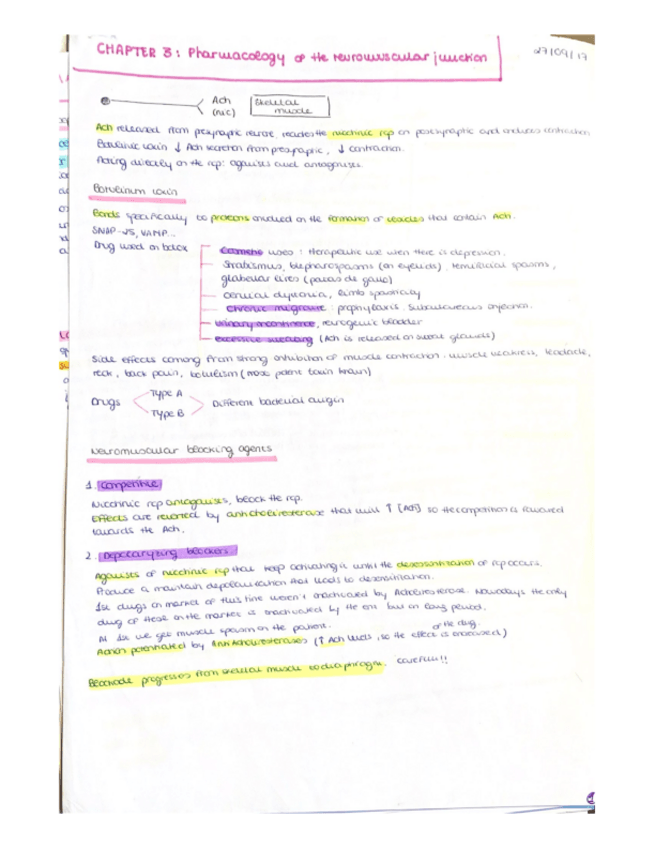 CHAPTER 3: Pharmacology of the neuromuscular junction
27/09/17
Ach
(nic)
Skeletal
muscle
Ach released from presynaptic neurone, reaches the nicotinic rcp on postsynaptic and induces contraction
Botulinic toxin ↓ Ach secretion from presynaptic, ↓ contraction.
Acting directly on the rcp: agonists and antagonists.
Botulinum toxin
Bonds specifically to proteins involved on the formation of vesicles that contain Ach.
SNAP-25, VAMP...
Drug used on botox
Cosmetic uses: therapeutic use when there is depression.
Strabismus, blepharospasms (on eyelids), hemifacial spasms,
glabellar lines (patas de gallo)
cervical dystonia, limb spasticity
Chronic migraine: prophylaxis. Subcutaneous injection.
Urinary incontinence, neurogenic bladder
excessive sweating (Ach is released on sweat glands)
Side effects coming from strong inhibition of muscle contraction: muscle weakness, headache,
neck, back pain, botulism (most potent toxin known)
Drugs
Type A
Type B
Different bacterial origin
Neuromuscular blocking agents
1. Competitive
Nicotinic rcp antagonists, block the rcp.
Effects are reverted by anticholinesterase that will ↑ [Ach] so the competition is favoured
towards the Ach.
2. Depolarizing blockers.
Agonists of nicotinic rcp that keep activating it until the desensitization of rcp occurs.
Produce a maintain depolarisation that leads to desensitization.
1st drugs on market of this line weren't inactivated by Achesterase. Nowadays the only
drug of these on the market is inactivated by the enz but on long period.
At 1st we get muscle spasm on the patient.
of the drug.
Action potentiated by Anticholinesterases (↑ Ach levels, so the effect is increased)
Blockade progresses from skeletal muscle to diaphragm. Careful!!